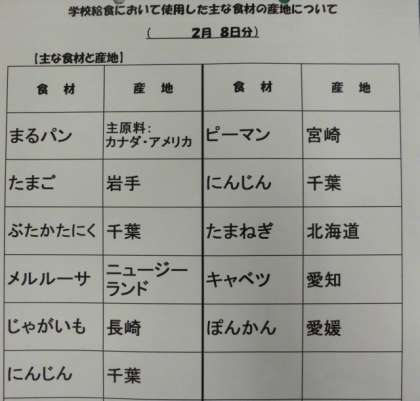 学校給食において使用した主な食材の産地について
( 2月 8日分)
【主な食材と産地】
食 材 産 地 食 材 産 地
まるパン 主原料: カナダ・アメリカ ピーマン 宮崎
たまご 岩手 にんじん 千葉
ぶたかたにく 千葉 たまねぎ 北海道
メルルーサ ニュージーランド キャベツ 愛知
じゃがいも 長崎 ぽんかん 愛媛
にんじん 千葉